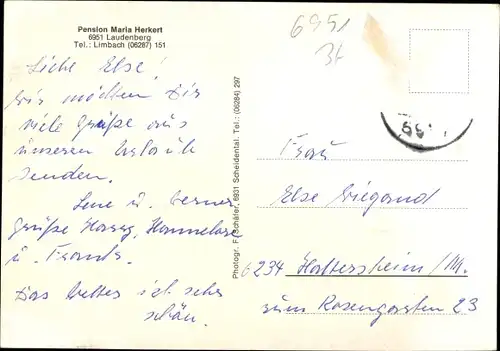 Pension Maria Herkert
6951 Laudenberg
Tel.: Limbach (06287) 151
Liebe Else!
Wir möchten Dir
viele Grüße aus
unseren Urlaub
senden.
Lene u. Werner
Grüße Hannelore
u. Frank.
Das Wetter ist sehr
schön.
Photogr. F. Schäfer, 6931 Scheidental. Tel.: (06284) 297
6951
Frau
Else Wiegand
6234 Hattersheim/M.
zum Rosengarten 23